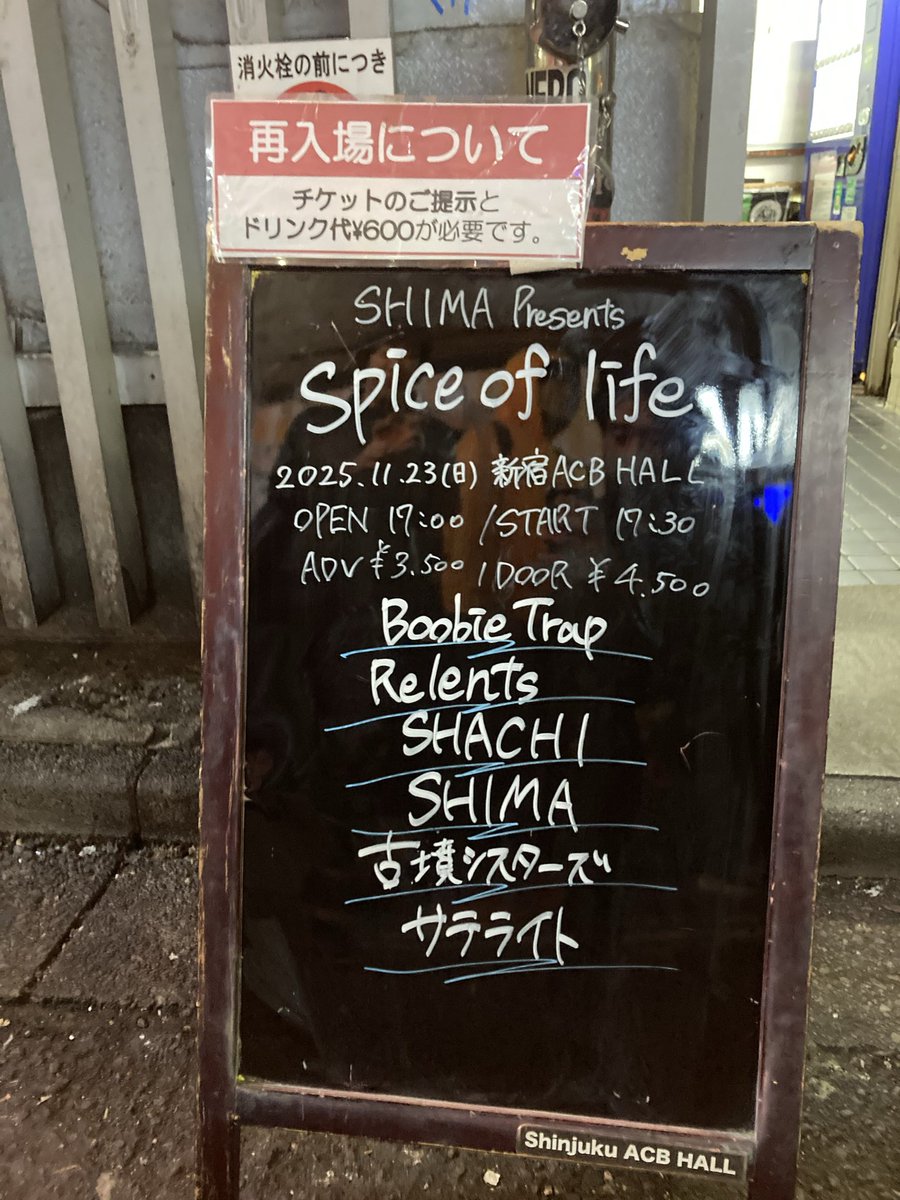 消火栓の前につき
再入場について
チケットのご提示と
ドリンク代¥600が必要です。
SHIMA Presents
Spice of life
2025.11.23(日) 新宿ACB HALL
OPEN 17:00 / START 17:30
ADV ¥3.500 / DOOR ¥4.500
Boobie Trap
Relents
SHACHI
SHIMA
古墳シスターズ
サテライト
Shinjuku ACB HALL